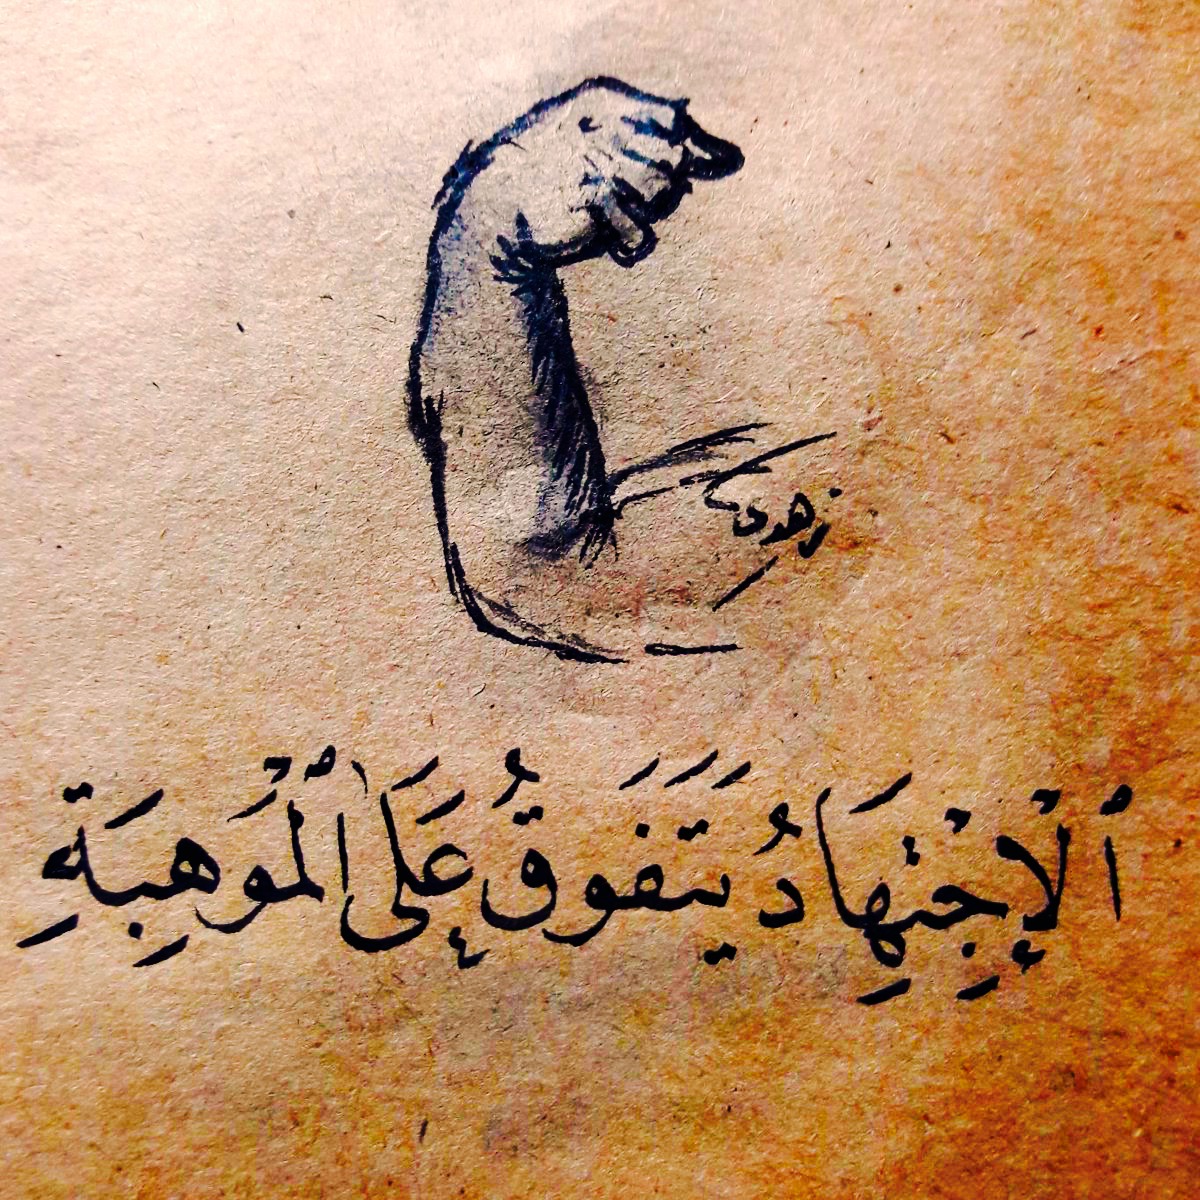 زهدي
ٱلْإِجْتِهَادُ يَتَفَوَقُ عَلَى ٱلْمَوْهِبَةِ